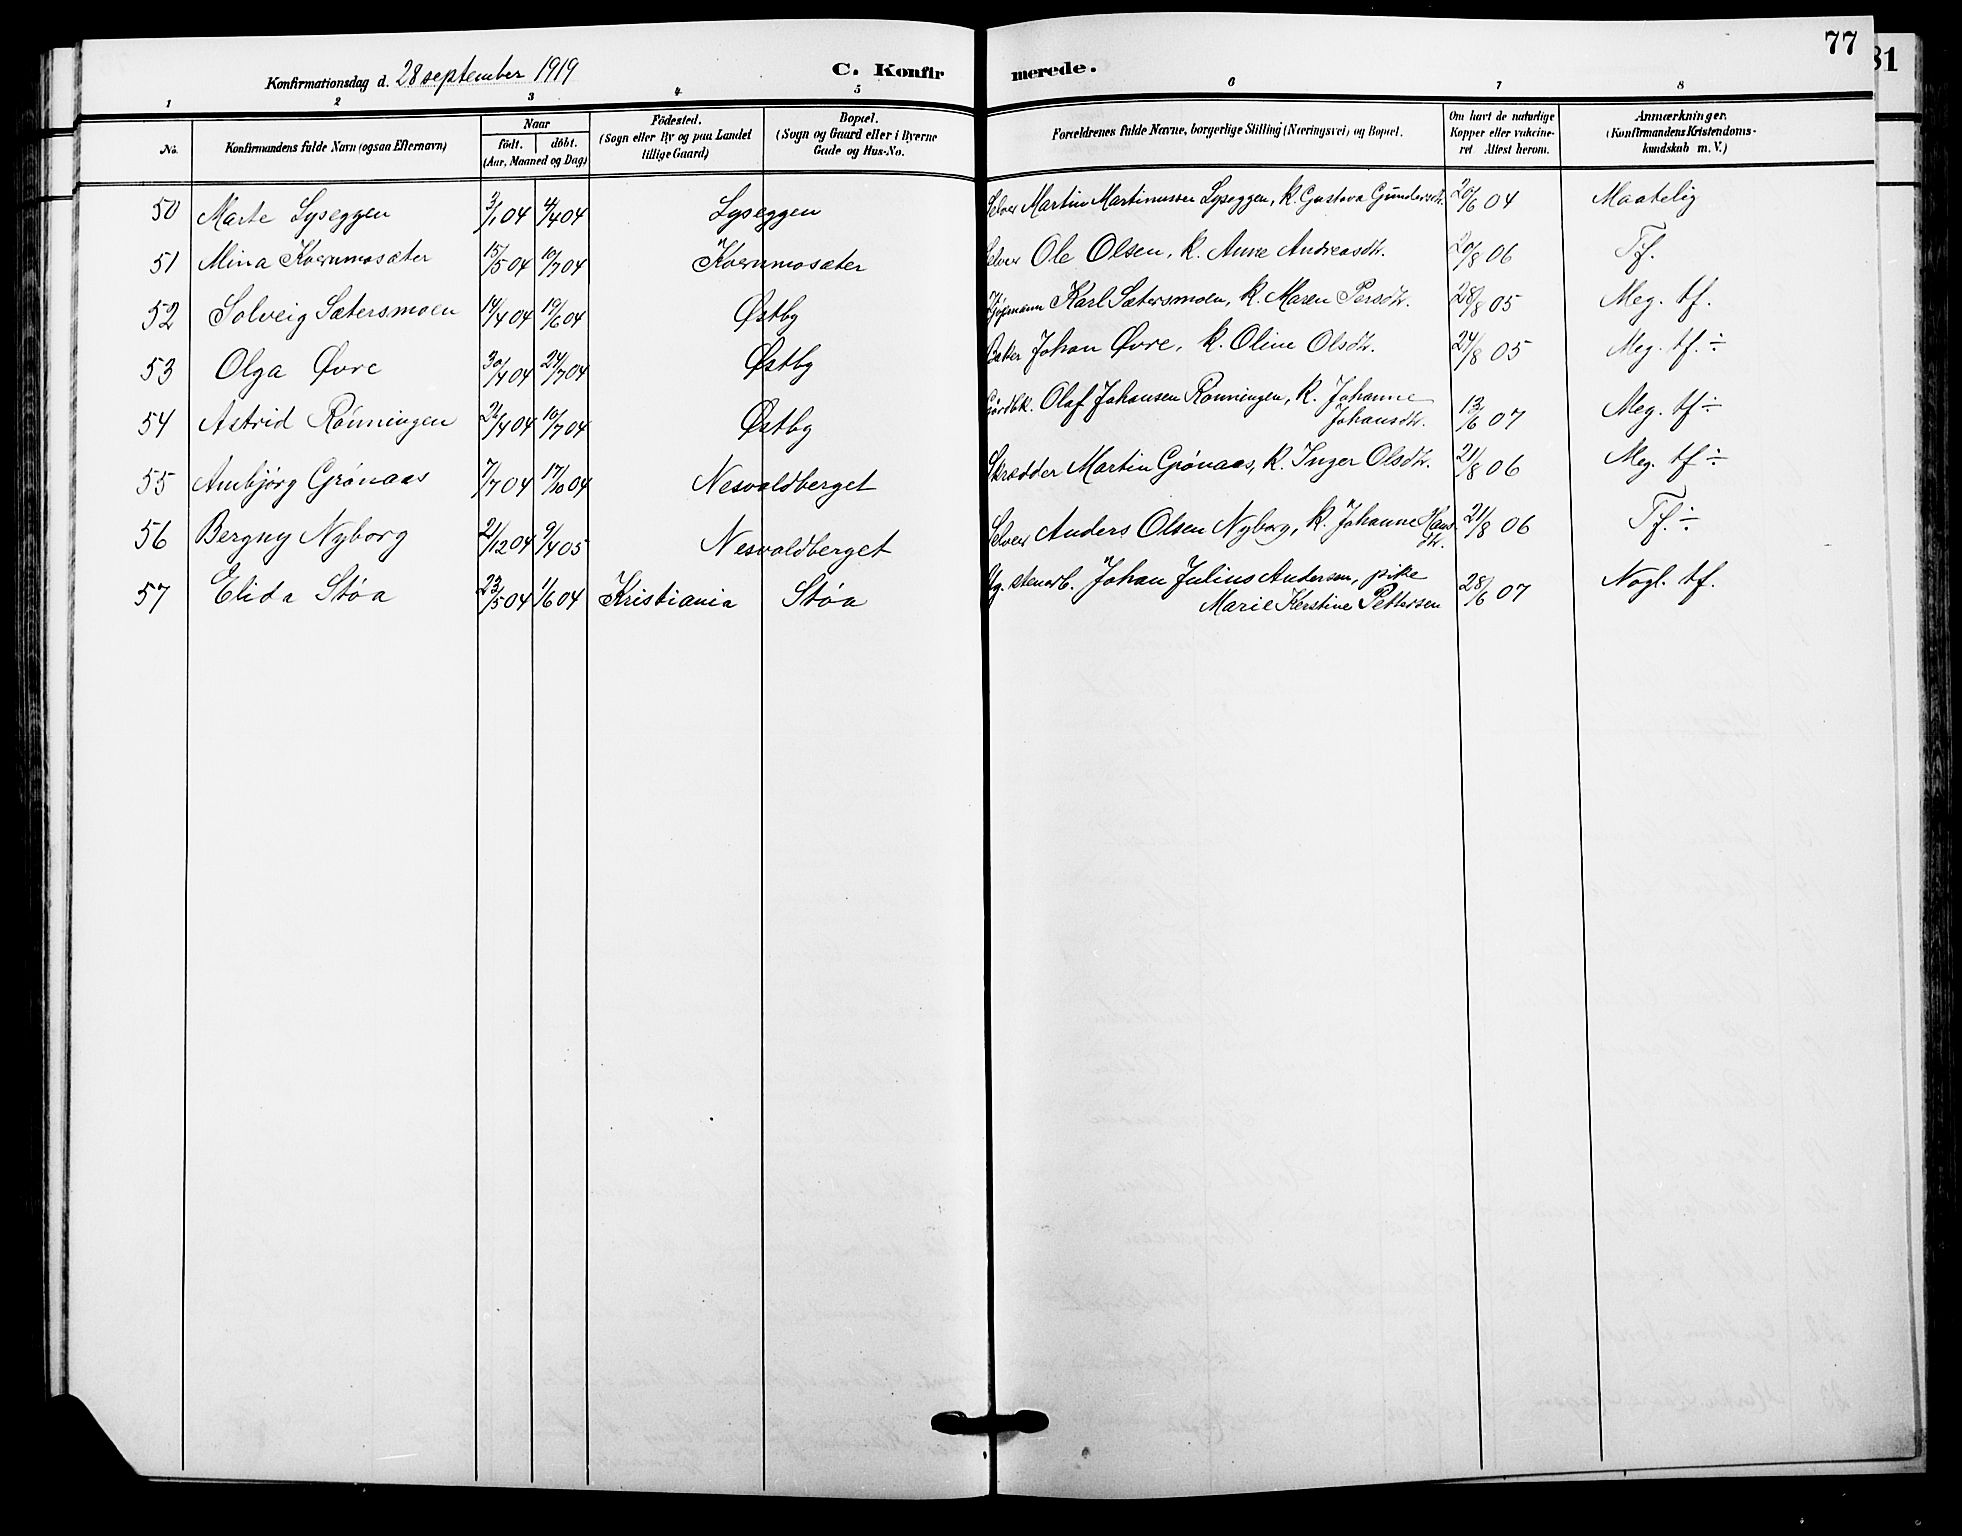 77
81
Konfirmationsdag d. 28 september 1919
C. Konfirmerede.
1 2 3 4 5 6 7 8
No. Konfirmandens fulde Navn (ogsaa Efternavn) Naar født. døbt. (Aar, Maaned og Dag) Fødested. (Sogn eller By og paa Landet tillige Gaard) Bopæl. (Sogn og Gaard eller i Byerne Gade og Hus-No. Forældrenes fulde Navne, borgerlige Stilling (Næringsvei) og Bopæl. Om havt de naturlige Kopper eller vaccineret Attest herom. Anmærkninger. (Konfirmandens Kristendomskundskab m. V.)
50 Marte Lyseggen 3/1 04 4/4 04 Lyseggen Selveier Martin Martinussen Lyseggen, k. Gustava Gundersdtr. 20/6 04 Maatelig
51 Mina Kvernmosæter 15/5 04 10/7 04 Kvernmosæter Selveier Ole Olsen, k. Anne Andreasdtr. 20/8 06 Tf.
52 Solveig Sætersmoen 14/4 04 19/6 04 Østby Karl Sætersmoen, k. Maren Persdtr. 28/8 05 Meg. tf.
53 Olga Øvre 30/4 04 24/7 04 Østby Johan Øvre, k. Oline Olsdtr. 24/8 05 Meg. tf. ÷
54 Astrid Rønningen 26/4 04 10/7 04 Østby Gårdbk. Olaf Johansen Rønningen, k. Johanne Johansdtr. 13/6 07 Meg. tf ÷
55 Ambjørg Grønaas 7/7 04 17/10 04 Nesvoldberget Skrædder Martin Grønaas, k. Inger Olsdtr. 21/8 06 Meg. tf ÷
56 Bergny Nyborg 21/12 04 9/4 05 Nesvoldberget Anders Olsen Nyborg, k. Johanne Hansdtr. 21/8 06 Tf. ÷
57 Elida Støa 23/5 04 1/6 04 Kristiania Støa Ug. stenarb. Johan Julius Andersen, pike
Marie Kerstine Pettersen 28/6 07 Nogl. tf.